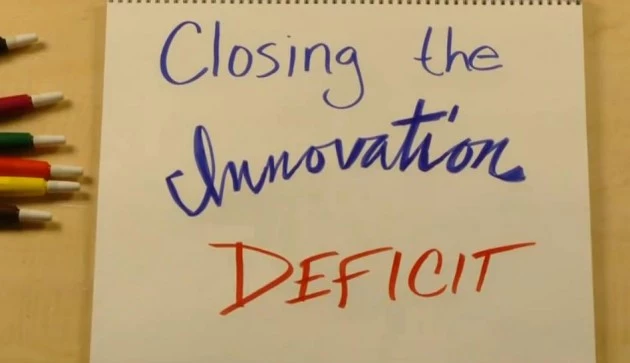 Closing the
Innovation
DEFICIT